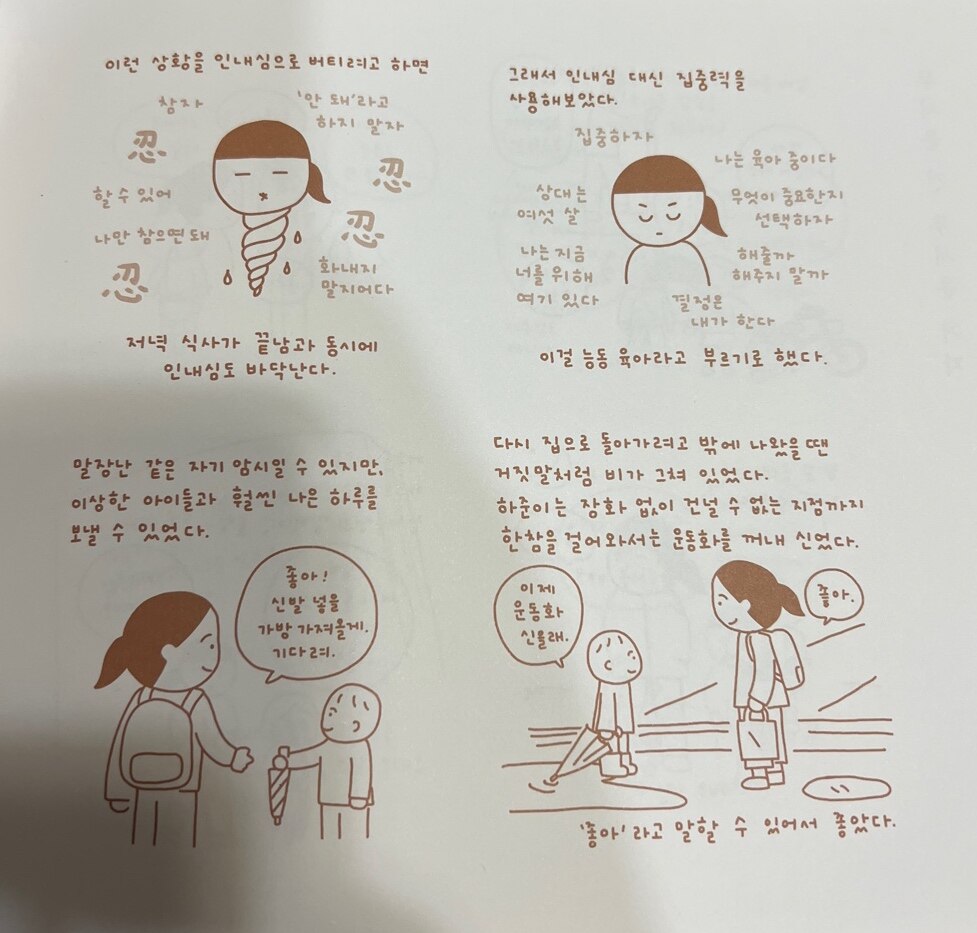 이런 상황을 인내심으로 버티려고 하면
참자
'안 돼'라고
하지 말자
忍
忍
할 수 있어
忍
나만 참으면 돼
忍
화내지
말지어다
저녁 식사가 끝남과 동시에
인내심도 바닥난다.
그래서 인내심 대신 집중력을
사용해보았다.
집중하자
나는 육아 중이다
상대는
여섯 살
무엇이 중요한지
선택하자
나는 지금
너를 위해
여기 있다
해줄까
해주지 말까
결정은
내가 한다
이걸 능동 육아라고 부르기로 했다.
말장난 같은 자기 암시일 수 있지만,
이상한 아이들과 훨씬 나은 하루를
보낼 수 있었다.
좋아!
신발 넣을
가방 가져올게.
기다려.
다시 집으로 돌아가려고 밖에 나왔을 땐
거짓말처럼 비가 그쳐 있었다.
하준이는 장화 없이 건널 수 없는 지점까지
한참을 걸어와서는 운동화를 꺼내 신었다.
이제
운동화
신을래.
좋아.
'좋아'라고 말할 수 있어서 좋았다.